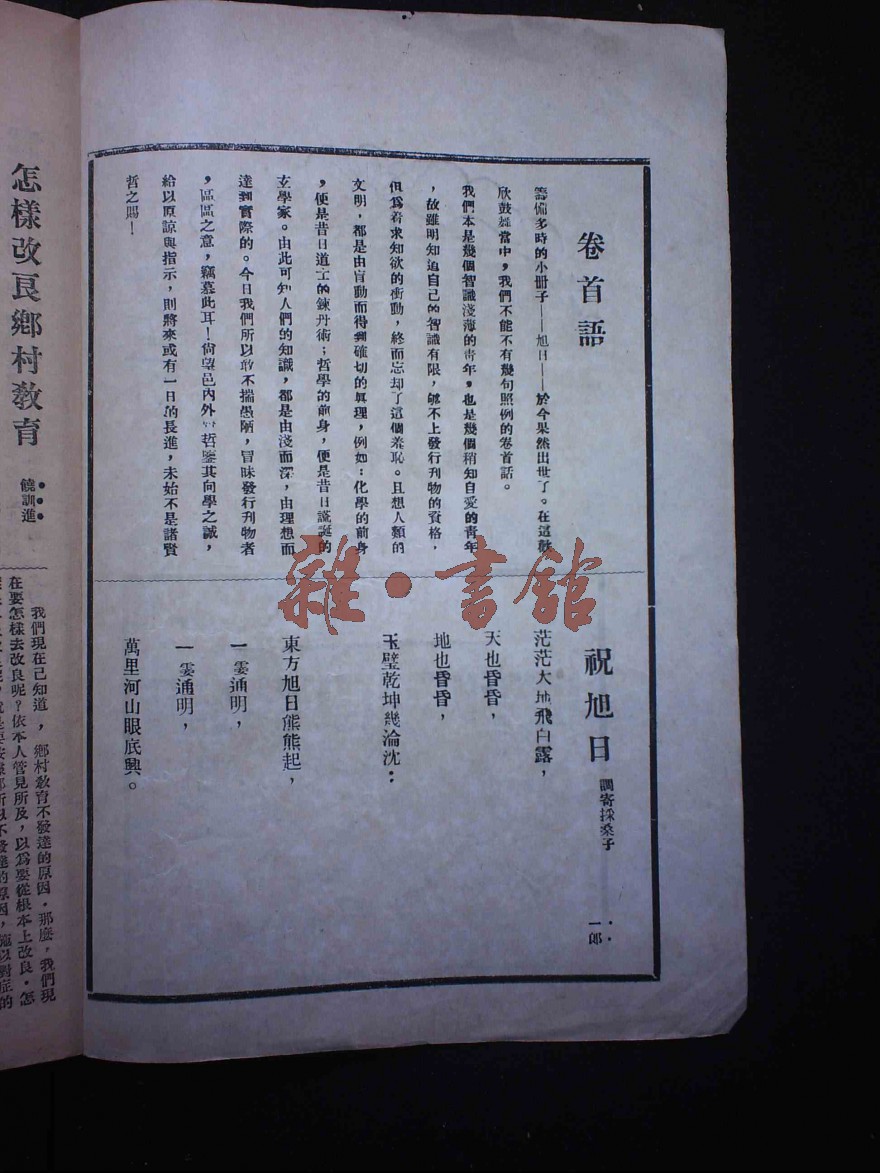 卷首語
籌備多時的小冊子——旭日——於今果然出世了。在這歡
欣鼓舞當中，我們不能不有幾句照例的卷首話。
我們本是幾個智識淺薄的青年，也是幾個稍知自愛的青年
，故雖明知道自己的智識有限，够不上發行刊物的資格，
但爲着求知欲的衝動，終而忘却了這個羞恥。且想人類的
文明，都是由盲動而得到確切的眞理，例如：化學的前身
，便是昔日道士的鍊丹術；哲學的前身，便是昔日謊誕的
玄學家。由此可知人們的知識，都是由淺而深，由理想而
達到實際的。今日我們所以敢不揣愚陋，冒昧發行刊物者
，區區之意，竊慕此耳！尙望邑內外 哲鑒其向學之誠，
給以原諒與指示，則將來或有一日的長進，未始不是諸賢
哲之賜！
祝旭日 調寄採桑子 一郎
茫茫大地飛白露，
天也昏昏，
地也昏昏，
玉璧乾坤幾淪沈：
東方旭日熊熊起，
一霎通明，
一霎通明，
萬里河山眼底興。
雜·書館
怎樣改良鄉村教育
饒訓進
我們現在已知道，鄉村教育不發達的原因。那麽，我們現
在要怎樣去改良呢？依本人管見所及，以爲要從根本上改良。怎